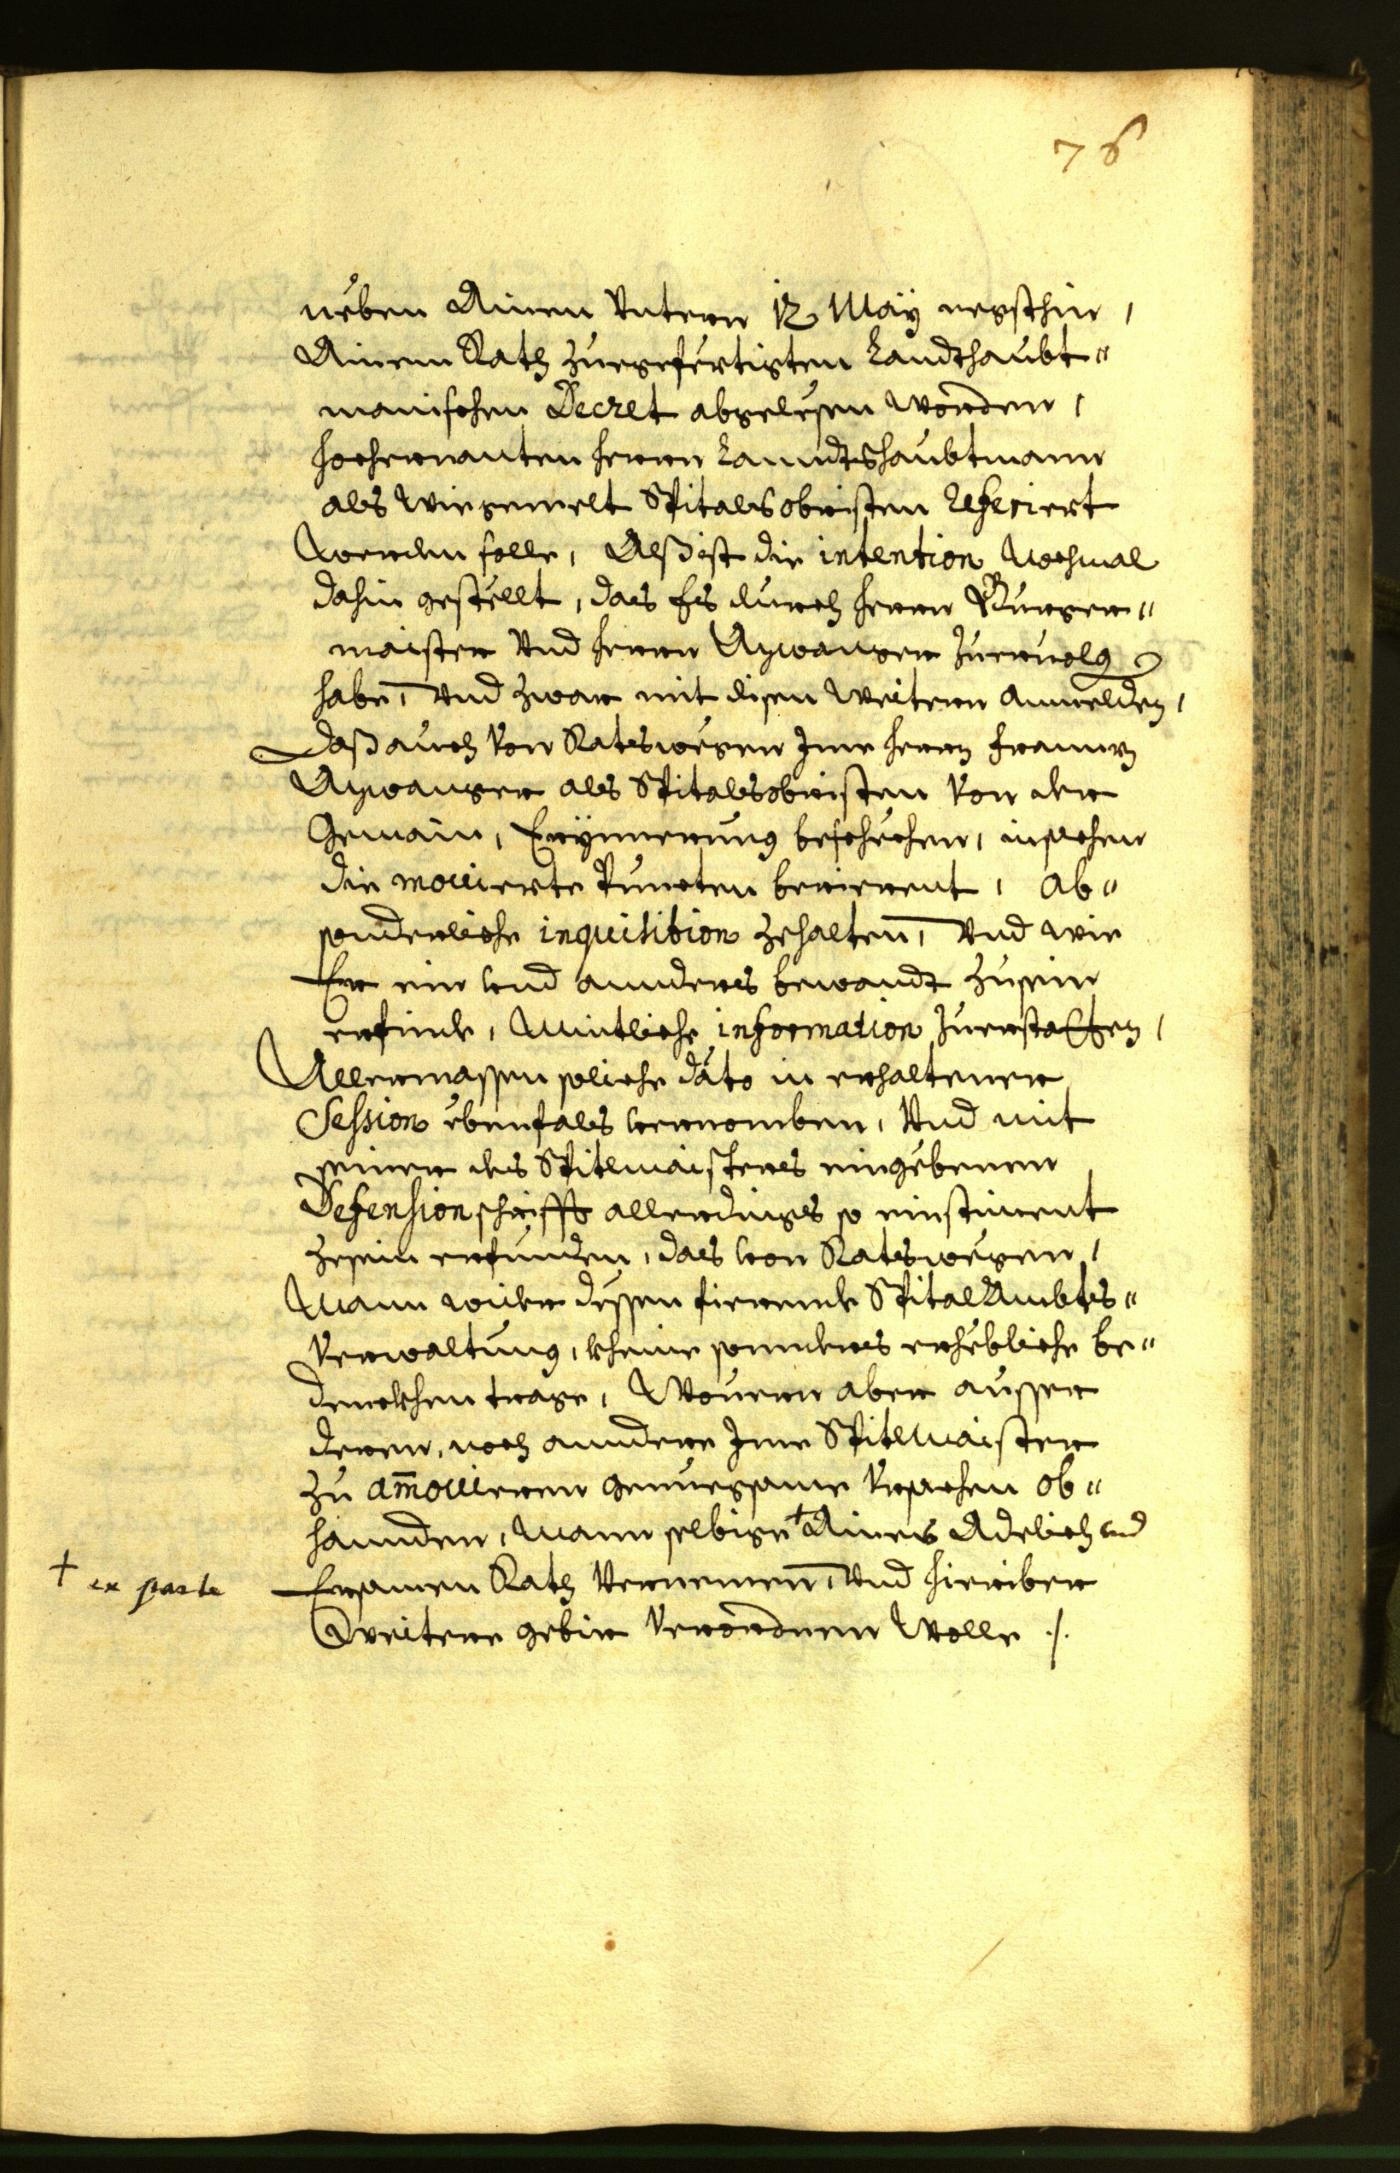 76
neben Ainen Untern 12 May negsthin,
Ainem Rath zuegefertigten Landthaubt„
manischen Decret abgelesen worden,
hochernanten herrn Lanndtshaubtmann
als wirgemelt Spitalsobristen Referiert
werden solle, Alß ist die intention nochmal
dahin gestellt, das es durch herrn Burger„
maister Und herrn Aywanger zuervolg
habe, Und zwar mit disen weitern anmelden,
Daß auch von Ratswegen Ime herrn Franzn
Aywanger als Spitalsobristen von der
Gemain, Erynnerung beschechen, in sachen
die movierte Puncten berierent, ab„
sonderliche inquisition zehalten, Und wie
Er ein und annders bewandt zusein
erfinde, Mintliche information zuerstatten,
Allermassen soliche dato in erhaltener
Session ebenfals vernomben, Und mit
seiner des Spitlmaisters eingebenen
Defensionschrifft allerdings so einstiment
zesein erfunden, das von Ratswegen,
Mann wider dessen fierende Spital Ambts„
verwaltung, kheine sonnders erhebliche be„
denckhen trage, Wouern aber ausser
deren, noch anndere Ime Spitlmaister
zu amovieren genuegsame Ursachen ob„
hannden, Mann selbige + Aines Adelich und
+ ex parte
Ersamen Rath Vernemen, Und hieriber
weitere gebir Verordnen Wolle ./.